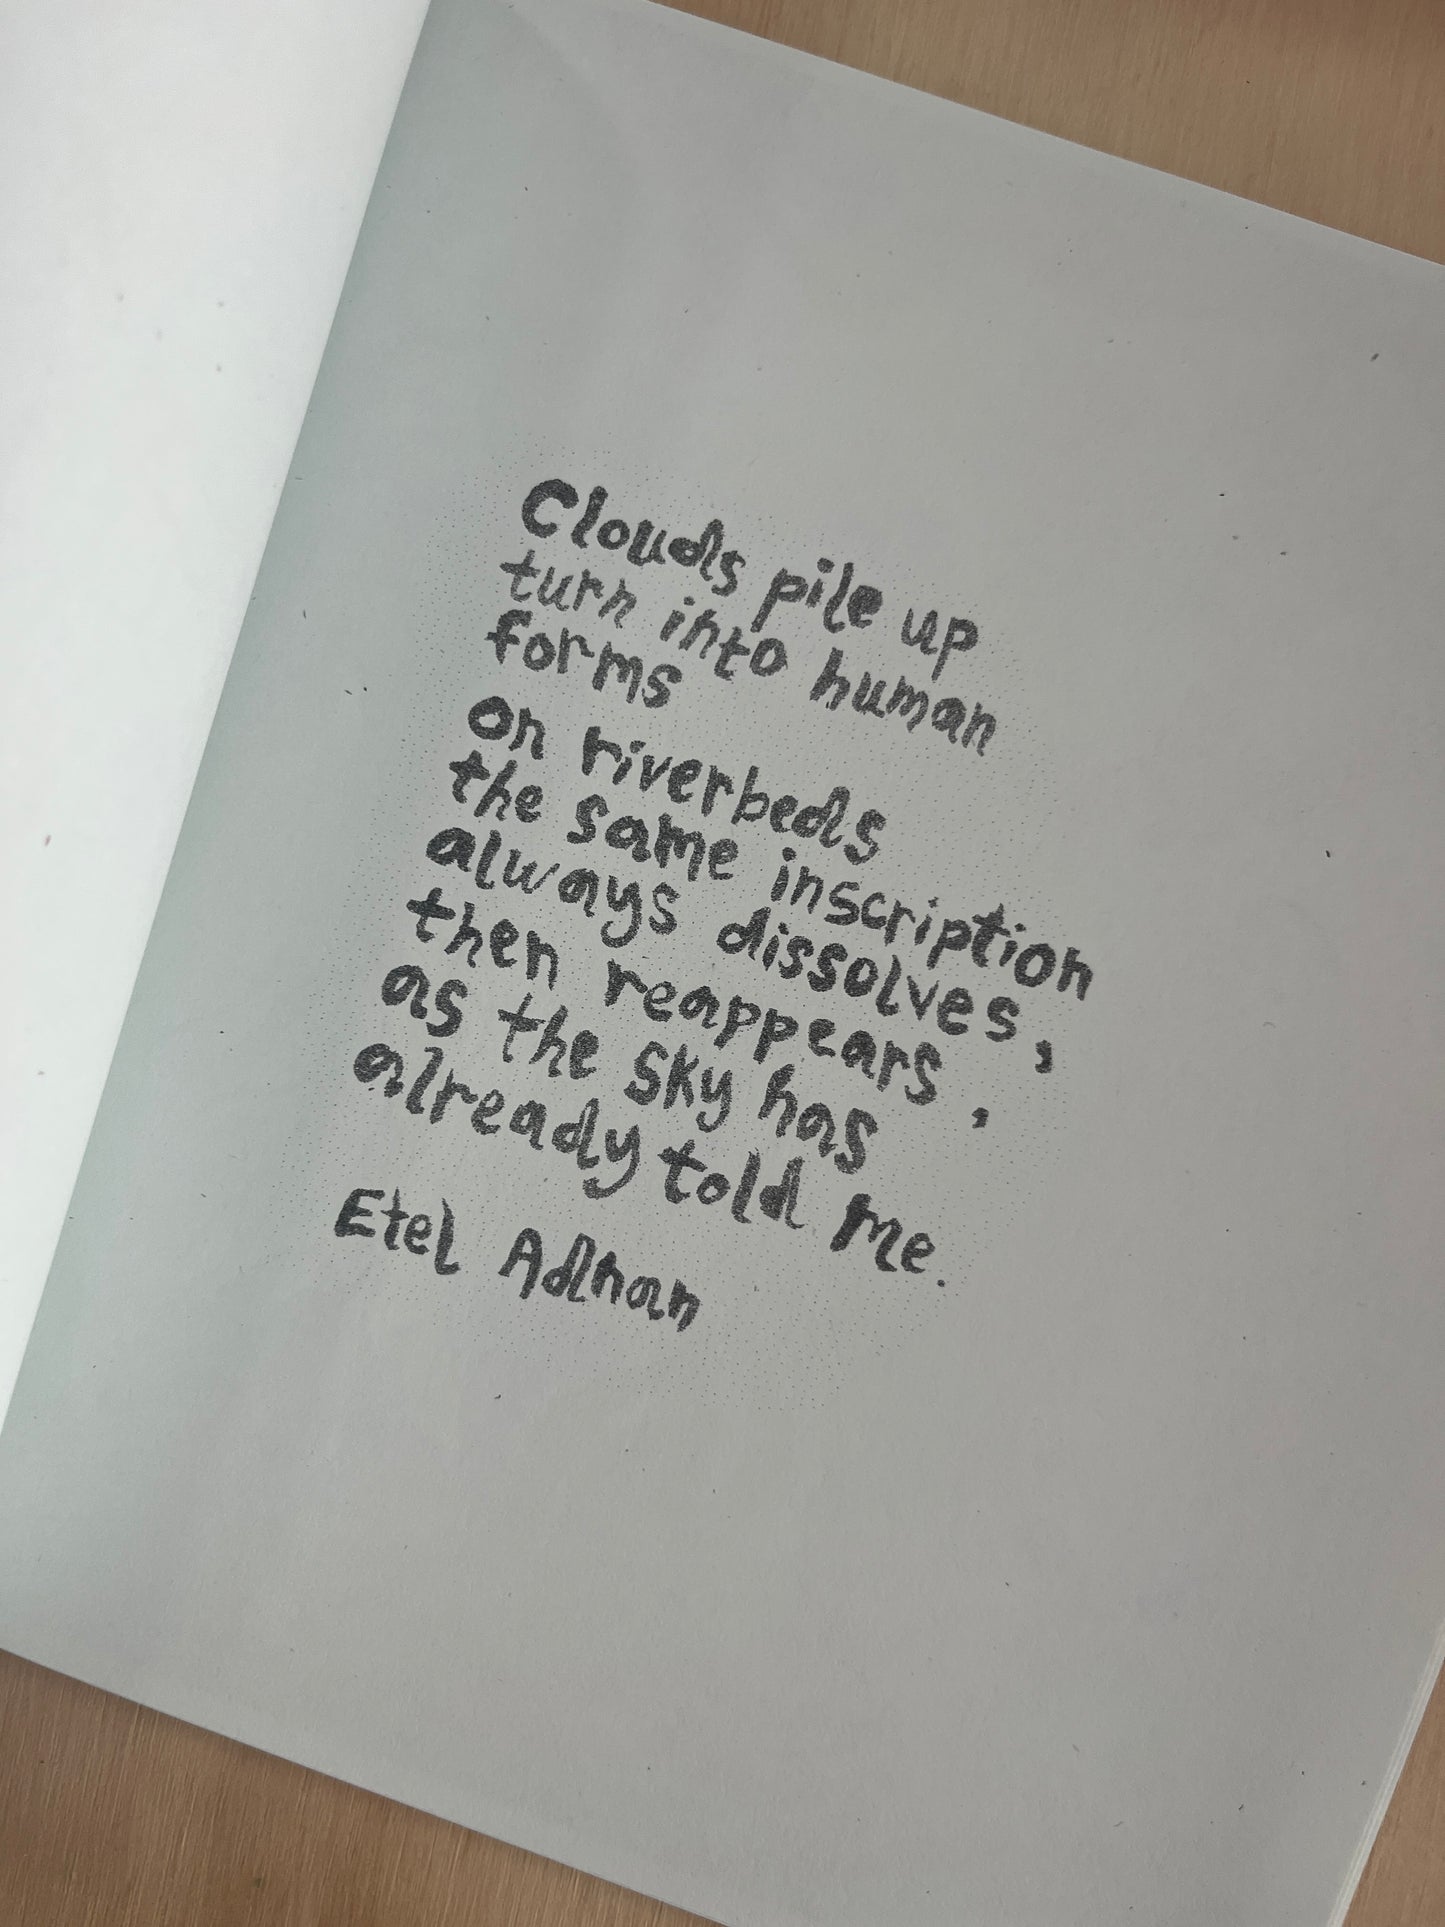 Clouds pile up
turn into human
forms
on riverbeds
the same inscription
always dissolves,
then reappears,
as the sky has
already told me.
Etel Adnan